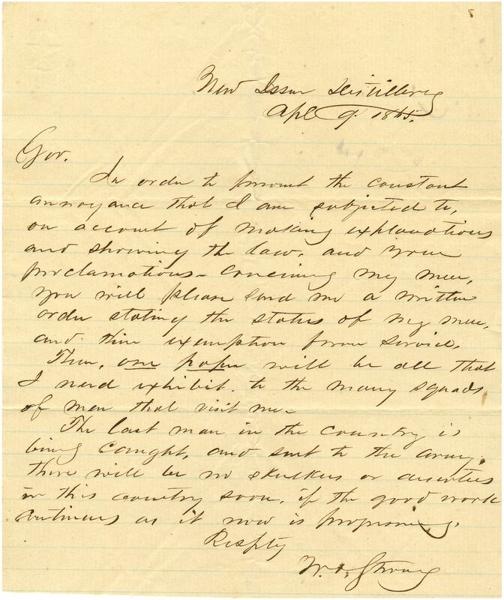 New Issue Distillery
Apl 9. 1865.
Gov.
In order to prevent the constant
annoyance that I am subjected to,
on account of making explanations
and showing the law, and your
proclamations – concerning my men,
you will please send me a written
order stating the status of my men,
and their exemption from service.
Then, one paper will be all that
I need exhibit to the many squads
of men that visit me –
The last man in the country is
being caught, and sent to the army.
there will be no skulkers or deserters
in this country soon, if the good work
continues as it now is progressing.
Respfly